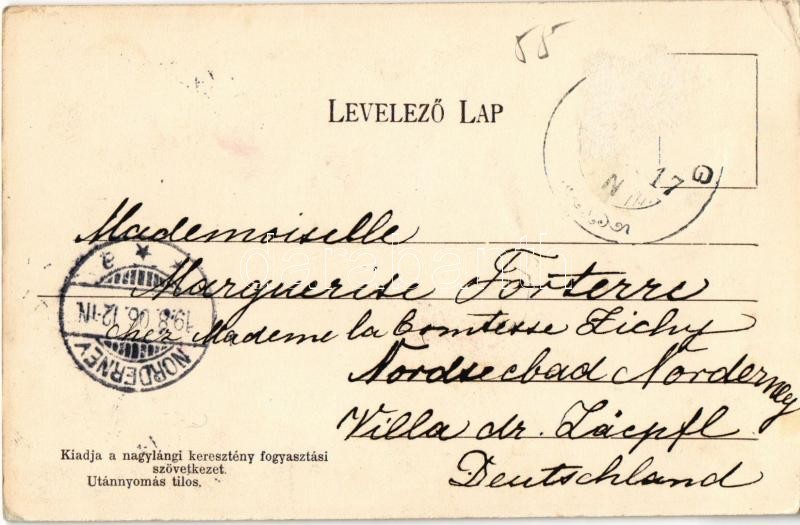 55
LEVELEZŐ LAP
17
Mademoiselle
Marguerise Forterre
chez Mademe la Comtesse Zichy
Nordseebad Norderney
Villa dr.
Deutschland
NORDERNEY
19.8.06.12-1N.
* * a
Kiadja a nagylángi keresztény fogyasztási
szövetkezet.
Utánnyomás tilos.